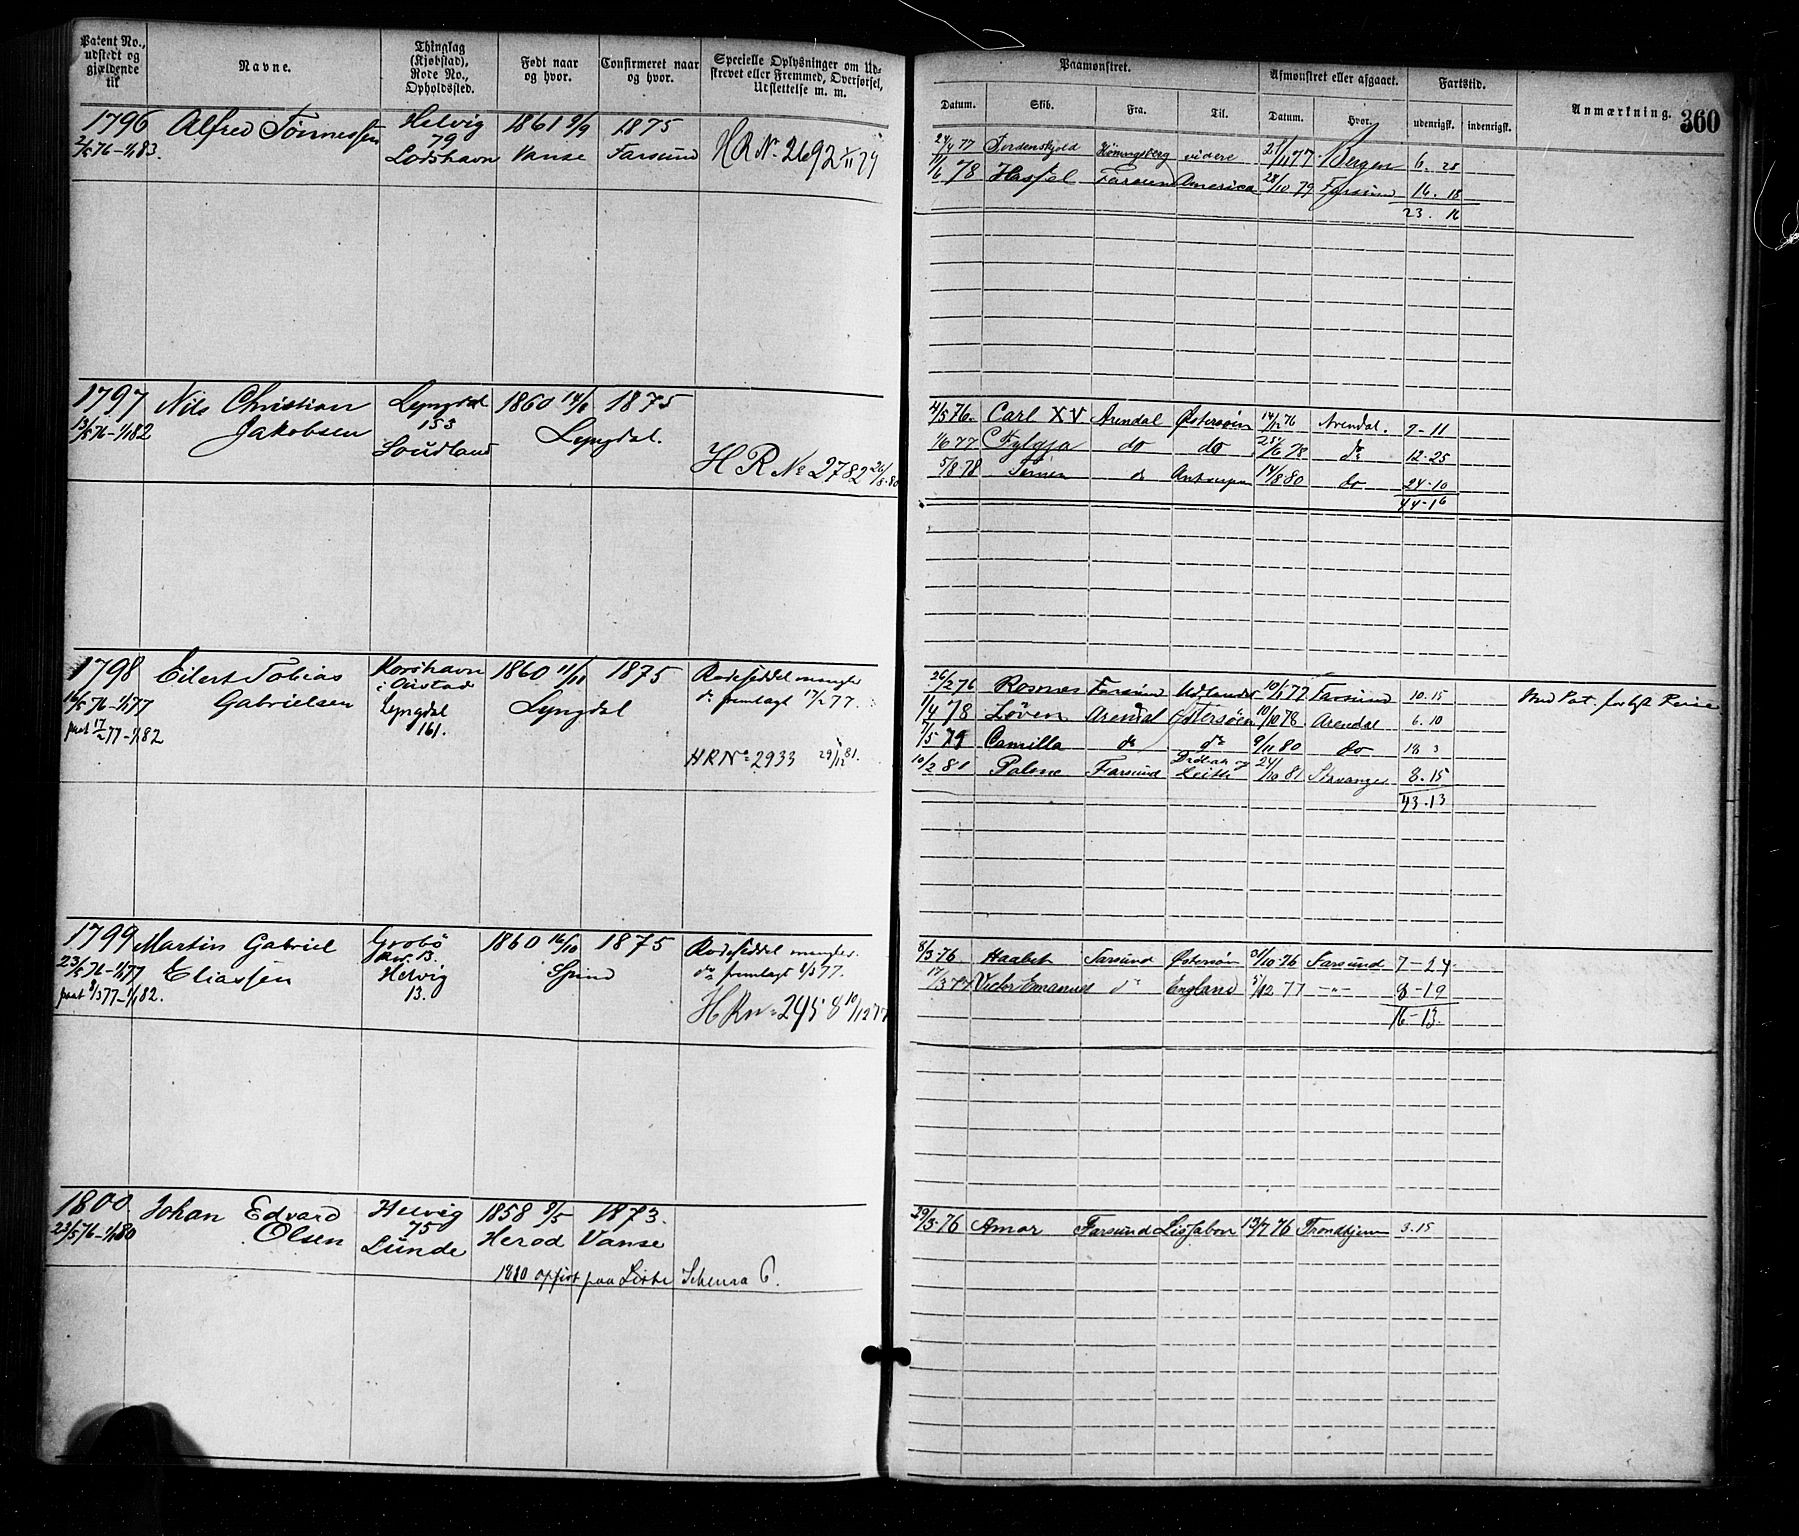 Patent No., udstedt og gjældende til
Navne.
Thinglag (Kjøbstad), Rode No., Opholdssted.
Født naar og hvor.
Confirmeret naar og hvor.
Specielle Oplysninger om Udstrevet eller Fremmed, Overførsel, Udslettelse m. m.
Paamønstret.
Datum.
Skib.
Fra.
Til.
Afmønstret eller afgaaet.
Datum.
Hvor.
Fartstid.
udenrigsk.
indenrigsk.
Anmærkning.
360
1796 Alfred Tönnessen Helvig 1861 9/9 1875
79
Lodshavn Vanse Farsund HR No. 2692
24/4 77 Tordenskjold videre 77 Bergen 6. 28
11/6 78 Hassel Farsund America 28/10 79 Farsund 16. 18
23. 16
1797 Nils Christian Lyngdal 1860 1875
13/5 76 - 1/1 82 Jakobsen 153 Lyngdal.
HR No 2782 80
4/5 76. Carl XV Arendal Østersöin 14/12 76 Arendal. 7-11
77 Fylgja do do 25/6 78 do 12-25
5/8 78 do Antwerpen 14/8 80 do 24-10
44-16
1798 Eilert Tobias Korshavn 1860 11/11 1875 Rodeseddel mangler
16/5 76 - 1/1 77 Gabrielsen i Lyngdal do fremlagt 17/2 77.
pat 17/2 77 - 1/1 82 Lyngdal
161.
HR No 2933 29/12 81.
26/2 76 Rosnes Farsund Udlandet 77 Farsund 10.15
1/4 78 Löven Arendal Østersöen 10/10 78 Arendal 6.10
7/5 79 Camilla do do 9/11 80 do 18 3
10/2 81 Palme Farsund Leith 24/10 81 Stavanger 8.15
43.13
1799 Martin Gabriel 1860 16/10 1875 Rodeseddel mangler.
23/5 76 - 1/1 77 Eliassen Helvig Spind do fremlagt 77.
pat 8/3 77 - 1/1 82. 13. HR No 2458 10/12 77
8/3 76 Haabet Farsund Østersöin 31/10 76 Farsund 7-24
17/3 77 Victor Emanuel do England 5/12 77 -"- 8-19
16-13.
1800 Johan Edvard Helvig 1858 9/5 1873.
23/5 76 - 1/1 80 Olsen 75 Herod Vanse
Lunde
1880 opfört paa Liste
29/3 76 Amor Farsund Lissabon 13/7 76 Trondhjem 3.15